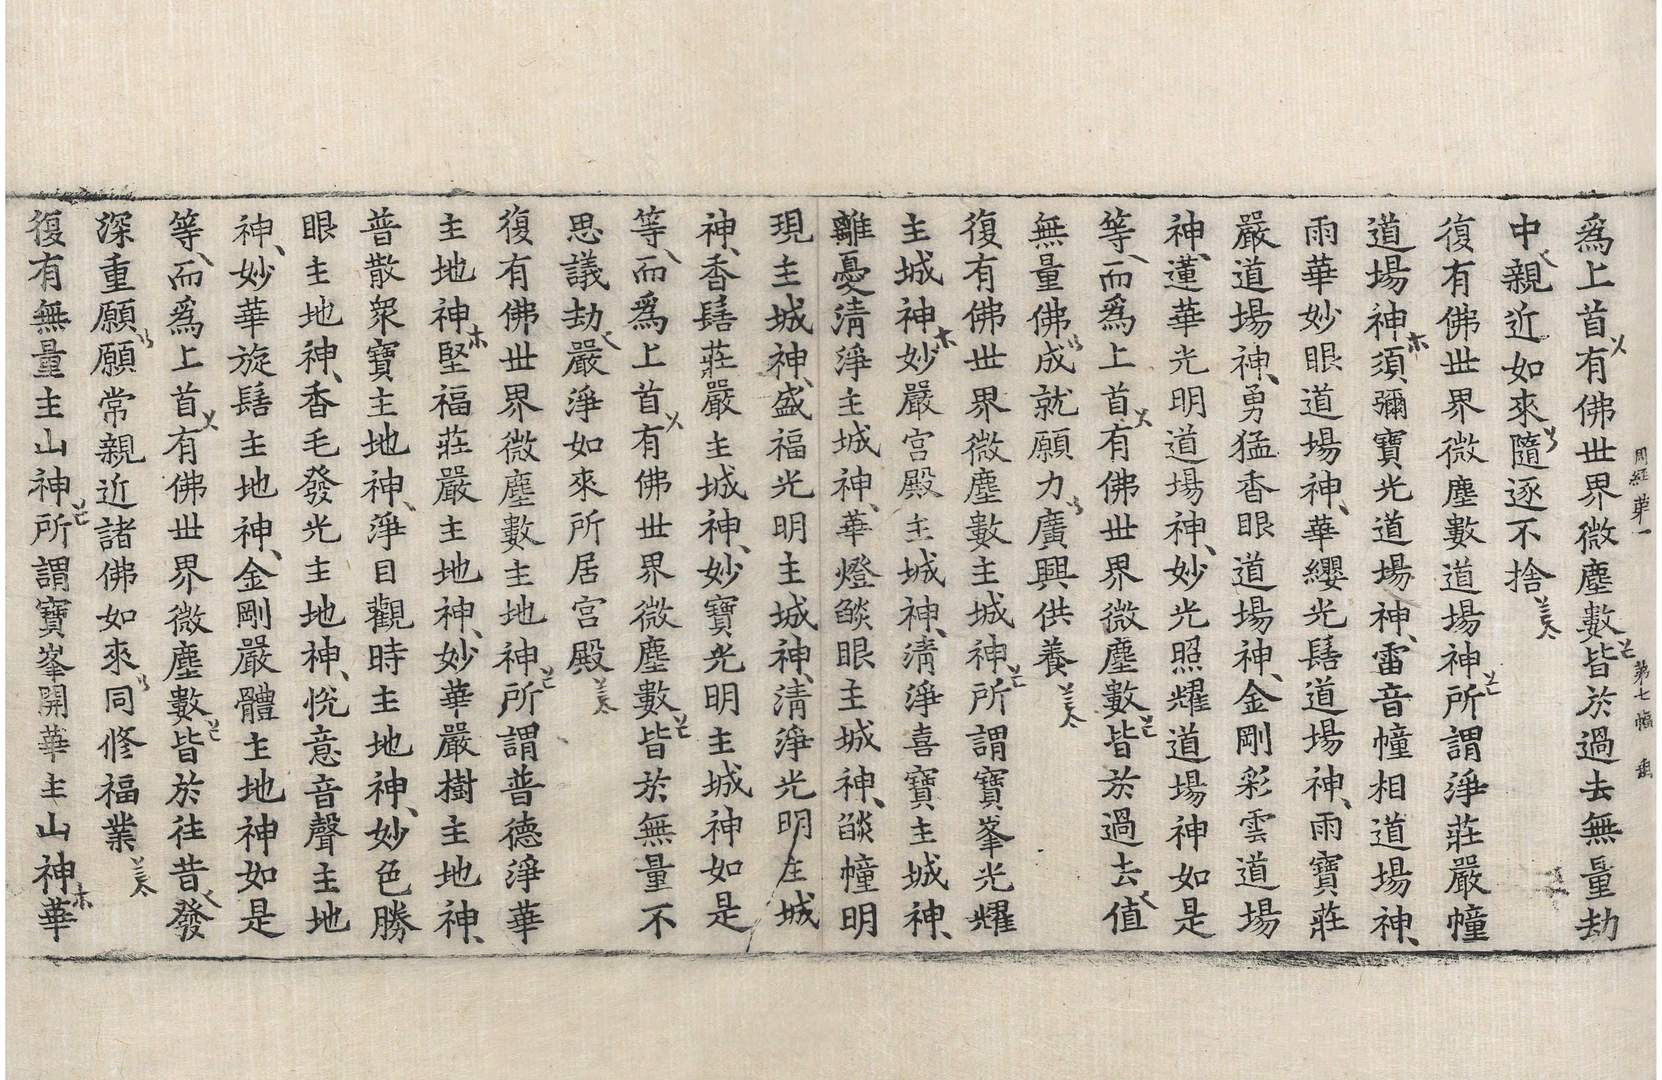 爲上首有佛世界微塵數皆於過去無量劫
中親近如來隨逐不捨
復有佛世界微塵數道場神所謂淨莊嚴幢
道場神須彌寶光道場神雷音幢相道場神
雨華妙眼道場神華纓光髻道場神雨寶莊
嚴道場神勇猛香眼道場神金剛彩雲道場
神蓮華光明道場神妙光照耀道場神如是
等而爲上首有佛世界微塵數皆於過去值
無量佛成就願力廣興供養
復有佛世界微塵數主城神所謂寶峯光耀
主城神妙嚴宮殿主城神清淨喜寶主城神
離憂清淨主城神華燈餤眼主城神餤幢明
現主城神盛福光明主城神清淨光明主城
神香髻莊嚴主城神妙寶光明主城神如是
等而爲上首有佛世界微塵數皆於無量不
思議劫嚴淨如來所居宮殿
復有佛世界微塵數主地神所謂普德淨華
主地神堅福莊嚴主地神妙華嚴樹主地神
普散衆寶主地神淨目觀時主地神妙色勝
眼主地神香毛發光主地神悅意音聲主地
神妙華旋髻主地神金剛嚴體主地神如是
等而爲上首有佛世界微塵數皆於往昔發
深重願願常親近諸佛如來同修福業
復有無量主山神所謂寶峯開華主山神華
周經第一 第七幅